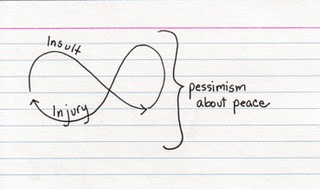 Insult
Injury
pessimism
about peace